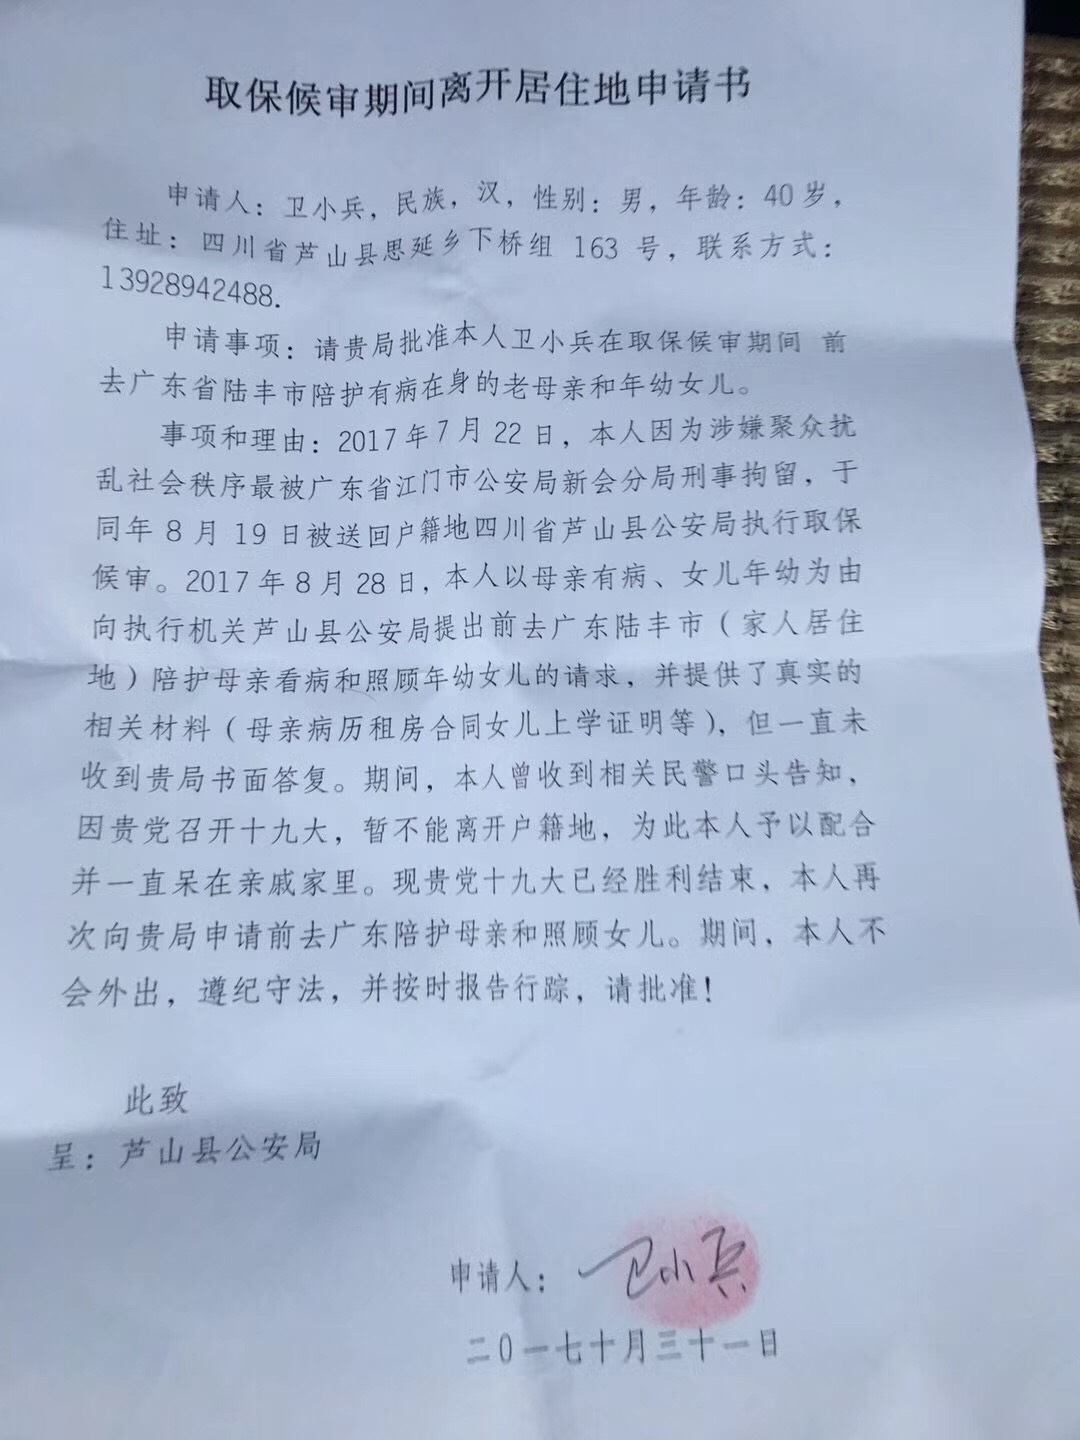 取保候审期间离开居住地申请书
申请人：卫小兵，民族，汉，性别：男，年龄：40岁，
住址：四川省芦山县思延乡下桥组 163 号，联系方式：
13928942488.
申请事项：请贵局批准本人卫小兵在取保候审期间 前
去广东省陆丰市陪护有病在身的老母亲和年幼女儿。
事项和理由：2017年7月22日，本人因为涉嫌聚众扰
乱社会秩序最被广东省江门市公安局新会分局刑事拘留，于
同年 8 月 19 日被送回户籍地四川省芦山县公安局执行取保
候审。2017 年 8 月 28 日，本人以母亲有病、女儿年幼为由
向执行机关芦山县公安局提出前去广东陆丰市（家人居住
地）陪护母亲看病和照顾年幼女儿的请求，并提供了真实的
相关材料（母亲病历租房合同女儿上学证明等），但一直未
收到贵局书面答复。期间，本人曾收到相关民警口头告知，
因贵党召开十九大，暂不能离开户籍地，为此本人予以配合
并一直呆在亲戚家里。现贵党十九大已经胜利结束，本人再
次向贵局申请前去广东陪护母亲和照顾女儿。期间，本人不
会外出，遵纪守法，并按时报告行踪，请批准！
此致
呈：芦山县公安局
申请人：卫小兵
二0一七十月三十一日